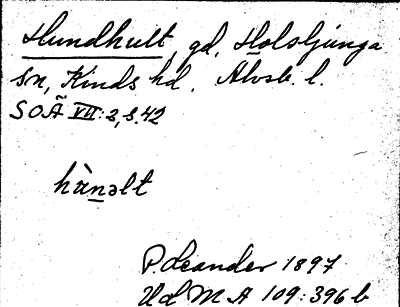 Hundhult, gd, Holsljunga
sn, Kinds hd. Älvsb. l.
SOÄ VII:2, s. 42
hùnəlt
P. Leander 1897
Ud M A 109:396 b